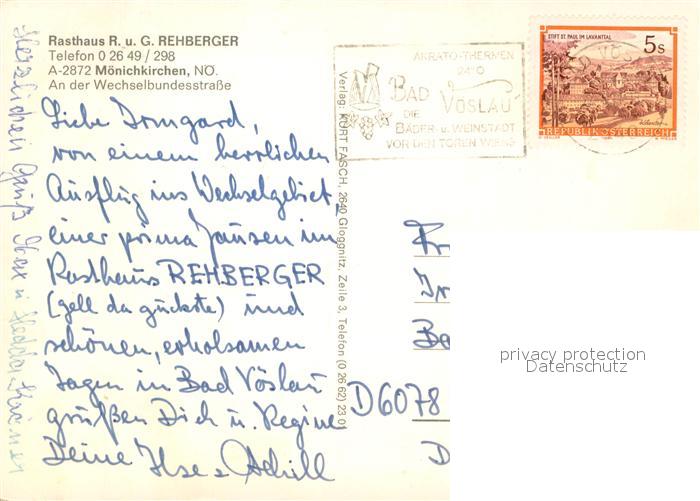 Rasthaus R. u. G. REHBERGER
Telefon 0 26 49 / 298
A-2872 Mönichkirchen, NÖ.
An der Wechselbundesstraße
Liebe Irmgard,
von einem herrlichen
Ausflug ins Wechselgebiet,
einer prima Jausen im
Rasthaus REHBERGER
(gell da guckste) und
schönen, erholsamen
Tagen in Bad Vöslau
grüßen Dich u. Regine
Deine Ilse u Achill
Herzlichen Gruß Max u Hedda
Verlag: KURT FASCH, 2640 Gloggnitz, Zeile 3, Telefon (0 26 62) 23 0
AKRATO-THERMEN
24°
BAD
VÖSLAU
DIE
BÄDER- u. WEINSTADT
VOR DEN TOREN WIENS
STIFT ST. PAUL IM LAVANTTAL
5s
REPUBLIK ÖSTERREICH
Fr
Ir
Ba
D6078
D
privacy protection
Datenschutz